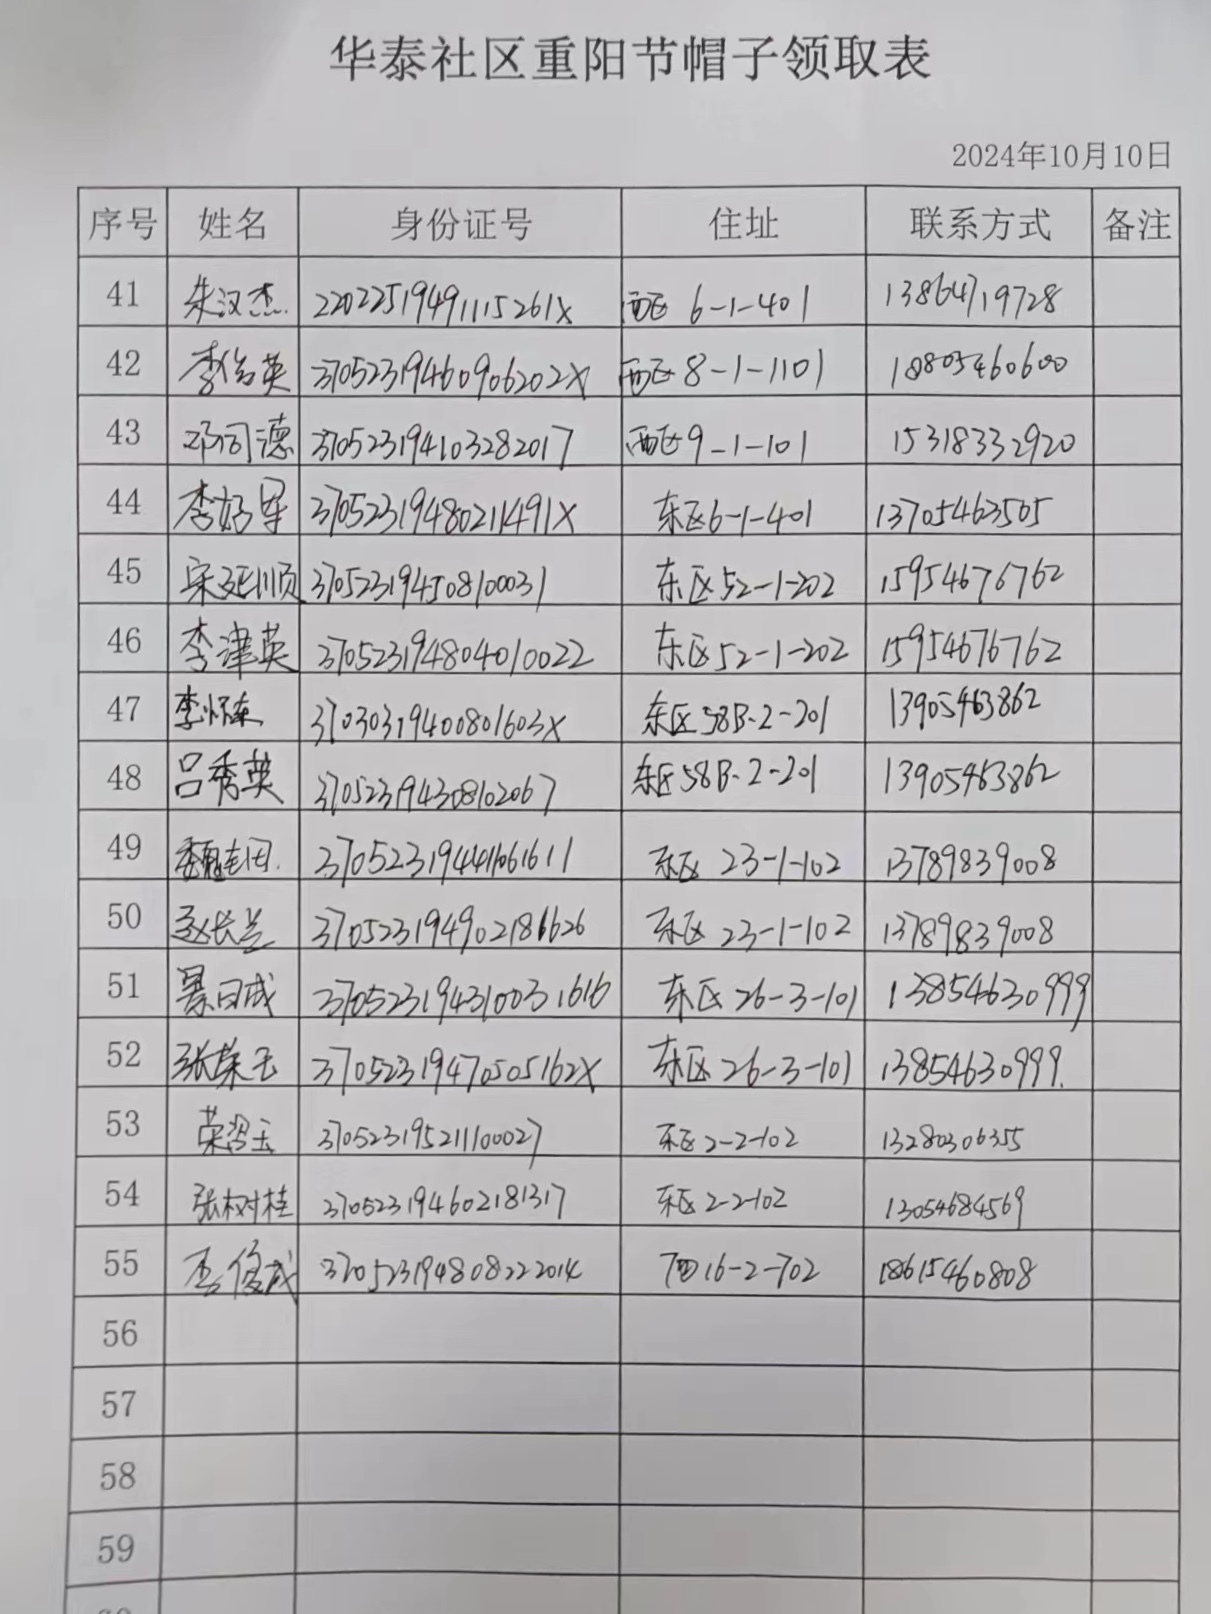 华泰社区重阳节帽子领取表
2024年10月10日
序号 姓名 身份证号 住址 联系方式 备注
41 朱汉杰 22022519491115261X 西区 6-1-401 13864719728
42 37052319460906202X 西区 8-1-1101 18805460600
43 邓同德 370523194103282017 西区 9-1-101 15318332920
44 37052319480211491X 东区 6-1-401 13705463505
45 宋延顺 370523194508100031 东区 52-1-202 15954676762
46 李津英 370523194804010022 东区 52-1-202 15954676762
47 李怀东 37030319400801603X 东区 58B-2-201 13905463862
48 吕秀英 370523194308102067 东区 58B-2-201 13905463862
49 370523194411061611 东区 23-1-102 13789839008
50 赵长兰 370523194902186626 东区 23-1-102 13789839008
51 370523194310031616 东区 26-3-101 13854630999
52 张荣玉 37052319470505162X 东区 26-3-101 13854630999
53 370523195211100027 东区 2-2-102 13280306355
54 张树桂 370523194602181317 东区 2-2-102 13054684569
55 李俊成 370523194808222014 西16-2-702 18615460808
56
57
58
59